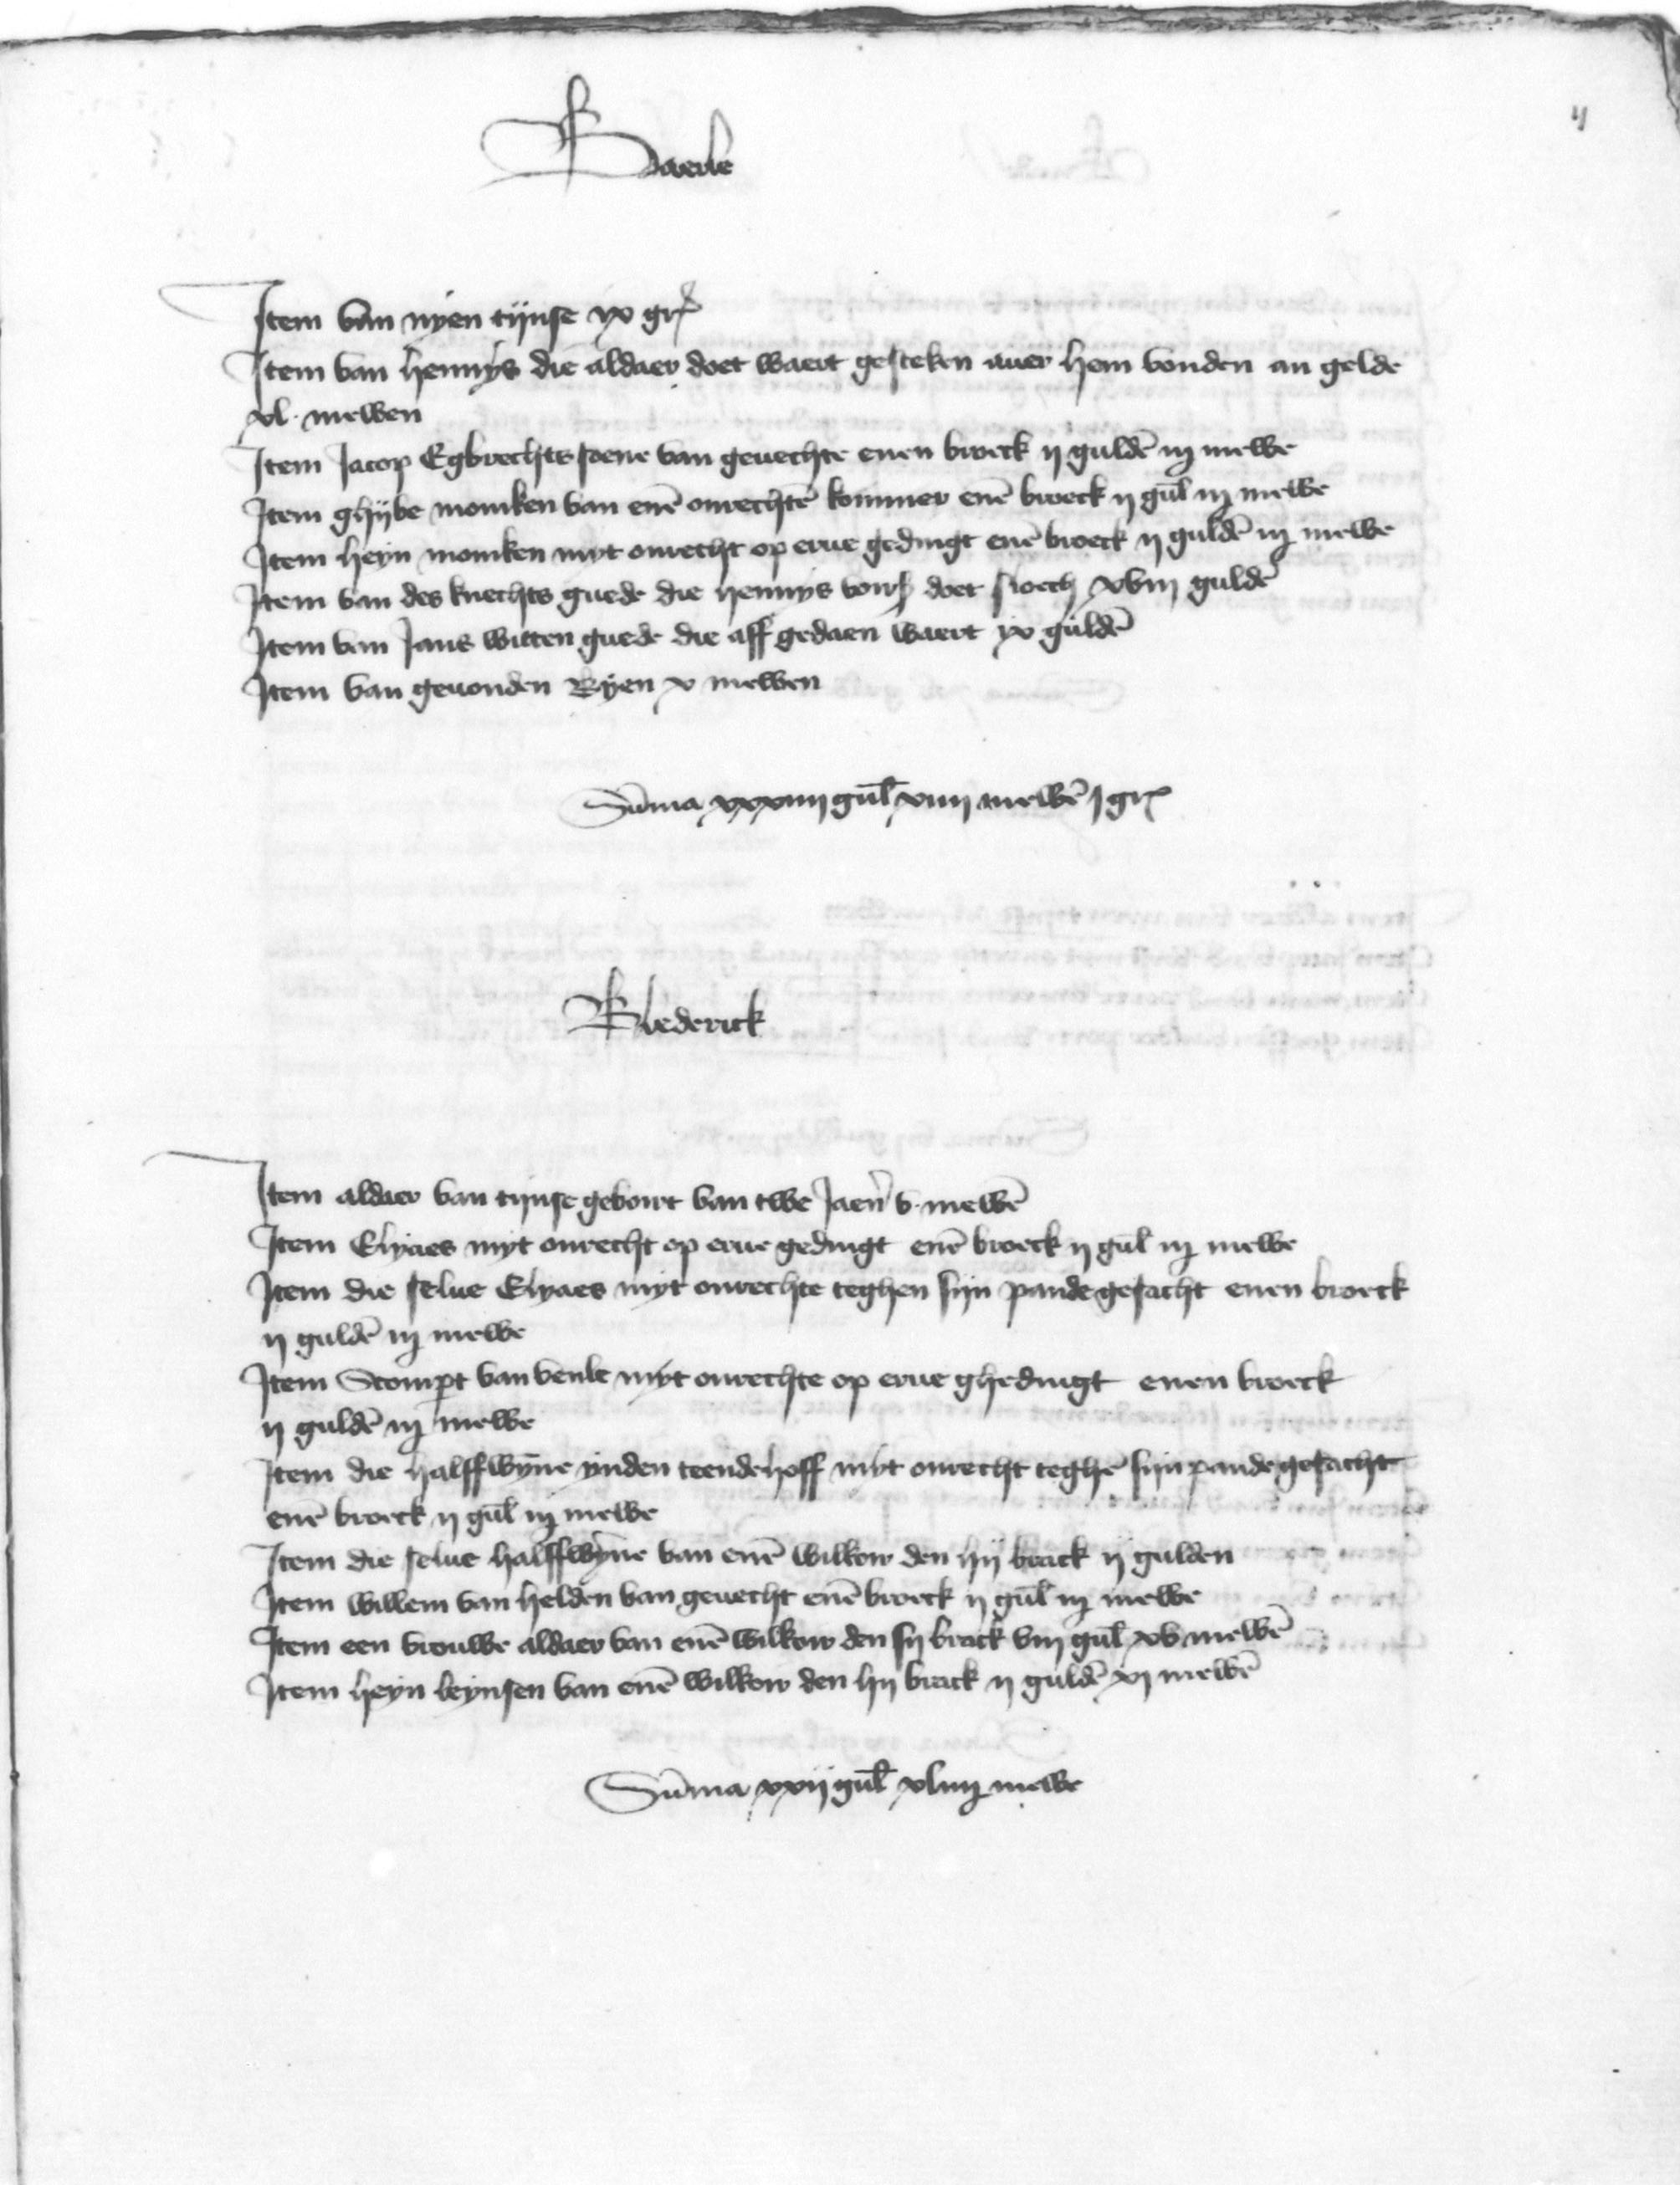 ij
Baerle
Item van nyen tijnse ix gr
Item van hennys die aldaer doet waert gesteken auer hem vonden an gelde
xl. mewen
Item Jacop Egbrechts soene van geuechte enen broeck ij guldē iij mewe
Item ghijbe momken van enē onrechtē kommer enē broeck ij gul̄ iij mewe
Item heyn momken myt onrecht op erue gedingt enē broeck ij guldē iij mewe
Item van des knechts guede die hennys vors doet sloech xviij guldē
Item van Jans witten guede die aff gedaen waert ix guldē
Item van geuonden Byen v mewen
Sūma xxxiiij gul̄ xiiij mewē j gr
Blederick
Item aldaer van tijnse geboirt van twe Jaern̄ v. mewē
Item Elyaes myt onrecht op erue gedingt enē broeck ij gul̄ iij mewe
Item die selue Elyaes myt onrechte teghen sijn pande gesacht enen broeck
ij guldē iij mewe
Item Stompt van venle myt onrechte op erue ghedingt enen broeck
ij guldē iij mewe
Item die halffwyn̄e ynden teendehoff myt onrecht teghē sijn pande gesacht
enē broeck ij gul̄ iij mewe
Item die selue halffwyn̄e van enē wilkor den hij brack ij gulden
Item willem van helden van geuecht enē broeck ij gul̄ iij mewe
Item een vrouwe aldaer van enē wilkor den sij brack viij gul̄ xv mewē
Item heyn leynsen van enē wilkor den hij brack ij guldē xj mewē
Sūma xxij gul̄ xliiij mewe